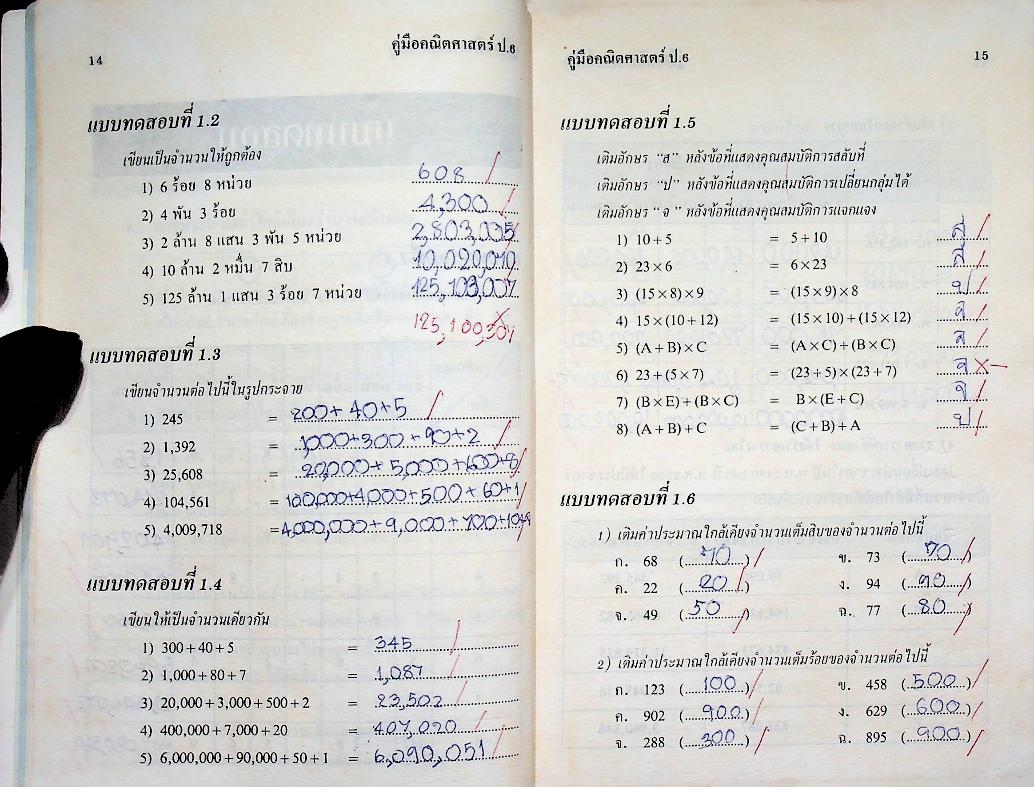 14
คู่มือคณิตศาสตร์ ป.6
แบบทดสอบที่ 1.2
เขียนเป็นจำนวนให้ถูกต้อง
1) 6 ร้อย 8 หน่วย 608
2) 4 พัน 3 ร้อย 4,300
3) 2 ล้าน 8 แสน 3 พัน 5 หน่วย 2,803,005
4) 10 ล้าน 2 หมื่น 7 สิบ 10,020,070
5) 125 ล้าน 1 แสน 3 ร้อย 7 หน่วย 125,103,007
125,100,307
แบบทดสอบที่ 1.3
เขียนจำนวนต่อไปนี้ในรูปกระจาย
1) 245 = 200+40+5
2) 1,392 = 1,000+300+90+2
3) 25,608 = 20,000+5,000+600+8
4) 104,561 = 100,000+4,000+500+60+1
5) 4,009,718 = 4,000,000+9,000+700+10+8
แบบทดสอบที่ 1.4
เขียนให้เป็นจำนวนเดียวกัน
1) 300+40+5 = 345
2) 1,000+80+7 = 1,087
3) 20,000+3,000+500+2 = 23,502
4) 400,000+7,000+20 = 407,020
5) 6,000,000+90,000+50+1 = 6,090,051
คู่มือคณิตศาสตร์ ป.6
15
แบบทดสอบที่ 1.5
เติมอักษร "ส" หลังข้อที่แสดงคุณสมบัติการสลับที่
เติมอักษร "ป" หลังข้อที่แสดงคุณสมบัติการเปลี่ยนกลุ่มได้
เติมอักษร "จ" หลังข้อที่แสดงคุณสมบัติการแจกแจง
1) 10+5 = 5+10 ส
2) 23×6 = 6×23 ส
3) (15×8)×9 = (15×9)×8 ป
4) 15×(10+12) = (15×10)+(15×12) จ
5) (A+B)×C = (A×C)+(B×C)
6) 23+(5×7) = (23+5)×(23+7) จ
7) (B×E)+(B×C) = B×(E+C) จ
8) (A+B)+C = (C+B)+A ป
แบบทดสอบที่ 1.6
1) เติมค่าประมาณใกล้เคียงจำนวนเต็มสิบของจำนวนต่อไปนี้
ก. 68 (70) ข. 73 (70)
ค. 22 (20) ง. 94 (90)
จ. 49 (50) ฉ. 77 (80)
2) เติมค่าประมาณใกล้เคียงจำนวนเต็มร้อยของจำนวนต่อไปนี้
ก. 123 (100) ข. 458 (500)
ค. 902 (900) ง. 629 (600)
จ. 288 (300) ฉ. 895 (900)